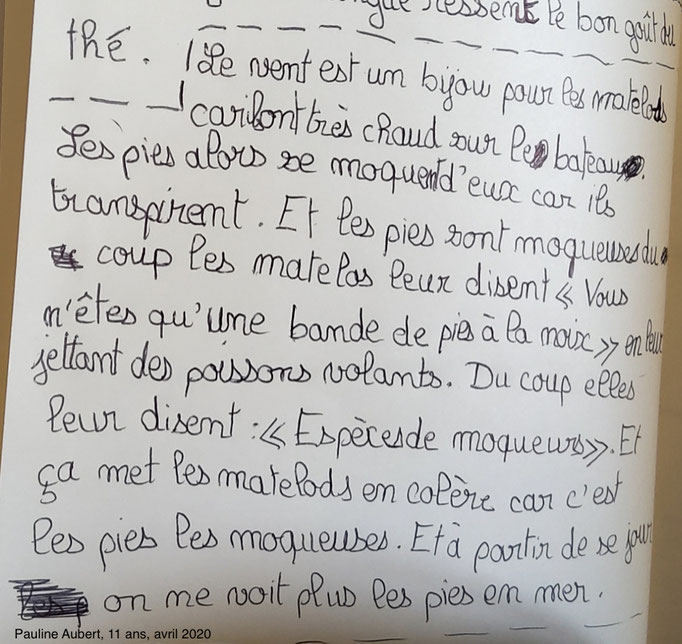 ressent le bon goût du
thé. Le vent est un bijou pour les matelods
car ils ont très chaud sur le bateau.
Les pies alors se moquent d'eux car ils
transpirent. Et les pies sont moqueuses du
coup les matelos leur disent « Vous
n'êtes qu'une bande de pies à la noix » en leur
jettant des poissons volants. Du coup elles
leur disent : « Espèces de moqueurs ». Et
ça met les matelods en colère car c'est
les pies les moqueuses. Et à partir de se jour
on ne voit plus les pies en mer.
Pauline Aubert, 11 ans, avril 2020